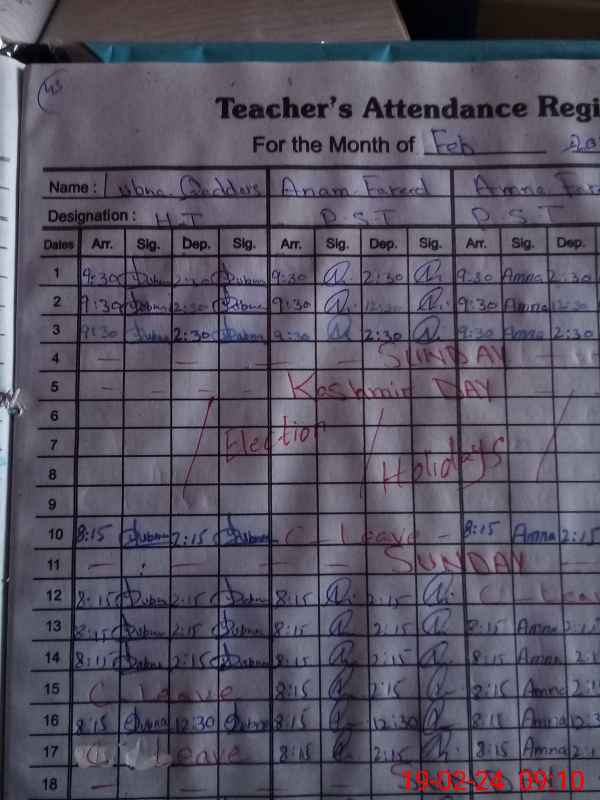 43
Teacher's Attendance Regi
For the Month of Feb 20
Name : Lubna Qaddars Anam Fareed Amna Far
Designation : H.T P.S.T P.S.T
Dates Arr. Sig. Dep. Sig. Arr. Sig. Dep. Sig. Arr. Sig. Dep.
1 9:30 Lubna 2:30 Lubna 9:30 2:30 9:30 Amna 2:30
2 9:30 Lubna 12:30 Lubna 9:30 12:30 9:30 Amna 12:30
3 9:30 Lubna 2:30 Lubna 9:30 2:30 9:30 Amna 2:30
4 — — — — SUNDAY —
5 - - - - Kashmir DAY
6
7 Election Holidays
8
9
10 8:15 Lubna 2:15 Lubna C Leave - 8:15 Amna 2:15
11 — — — — SUNDAY —
12 8:15 Lubna 2:15 Lubna 8:15 2:15 C Lea
13 8:15 Lubna 2:15 Lubna 8:15 2:15 8:15 Amna 2:15
14 8:15 Lubna 2:15 Lubna 8:15 2:15 8:15 Amna 2:1
15 C Leave 8:15 2:15 8:15 Amna 2:1
16 8:15 Lubna 12:30 Lubna 8:15 12:30 8:15 Amna 12:3
17 C Leave 8:15 2:15 8:15 Amna 2:1
18 —
19-02-24 09:10